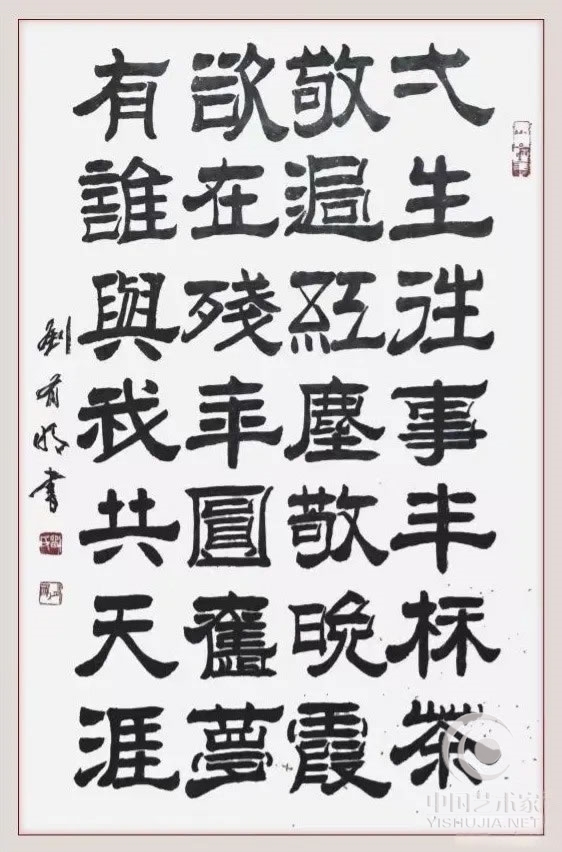 弌生往事半杯茶
敬過紅塵敬晚霞
欲在殘年圓舊夢
有誰與我共天涯
劉有明書
中国艺术家
YISHUJIA.NET